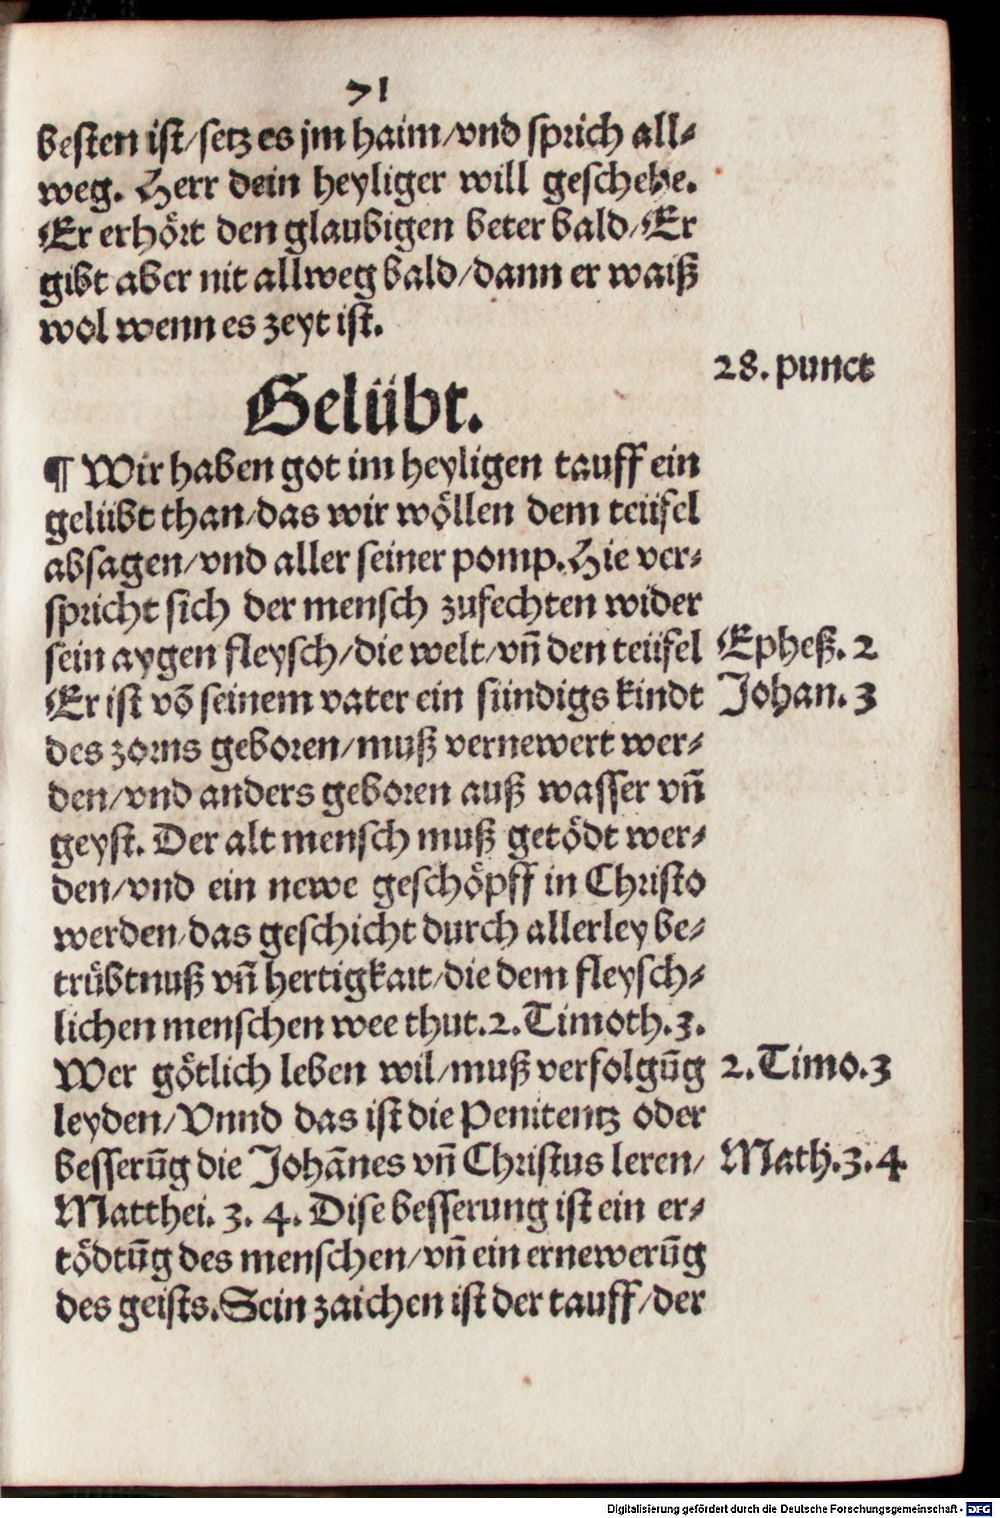 71
besten ist/setz es jm haim/vnd sprich all⸗
weg. Herr dein heyliger will geschehe.
Er erhört den glaubigen beter bald/Er
gibt aber nit allweg bald/dann er waiß
wol wenn es zeyt ist.
28. punct
Gelübt.
¶ Wir haben got im heyligen tauff ein
gelübt than/das wir wöllen dem teüfel
absagen/vnd aller seiner pomp. Hie ver⸗
spricht sich der mensch zufechten wider
sein aygen fleysch/die welt/vñ den teüfel
Epheß. 2
Er ist võ seinem vater ein sündigs kindt
Johan. 3
des zorns geboren/muß vernewert wer⸗
den/vnd anders geboren auß wasser vñ
geyst. Der alt mensch muß getödt wer⸗
den/vnd ein newe geschöpff in Christo
werden/das geschicht durch allerley be⸗
trübtnuß vñ hertigkait/die dem fleysch⸗
lichen menschen wee thut. 2. Timoth. 3.
Wer götlich leben wil/muß verfolgũg
2. Timo. 3
leyden/Vnnd das ist die Penitentz oder
besserũg die Johãnes vñ Christus leren/
Math. 3. 4.
Matthei. 3. 4. Dise besserung ist ein er⸗
tödtũg des menschen/vñ ein ernewerũg
des geists. Sein zaichen ist der tauff/der
Digitalisierung gefördert durch die Deutsche Forschungsgemeinschaft - DFG